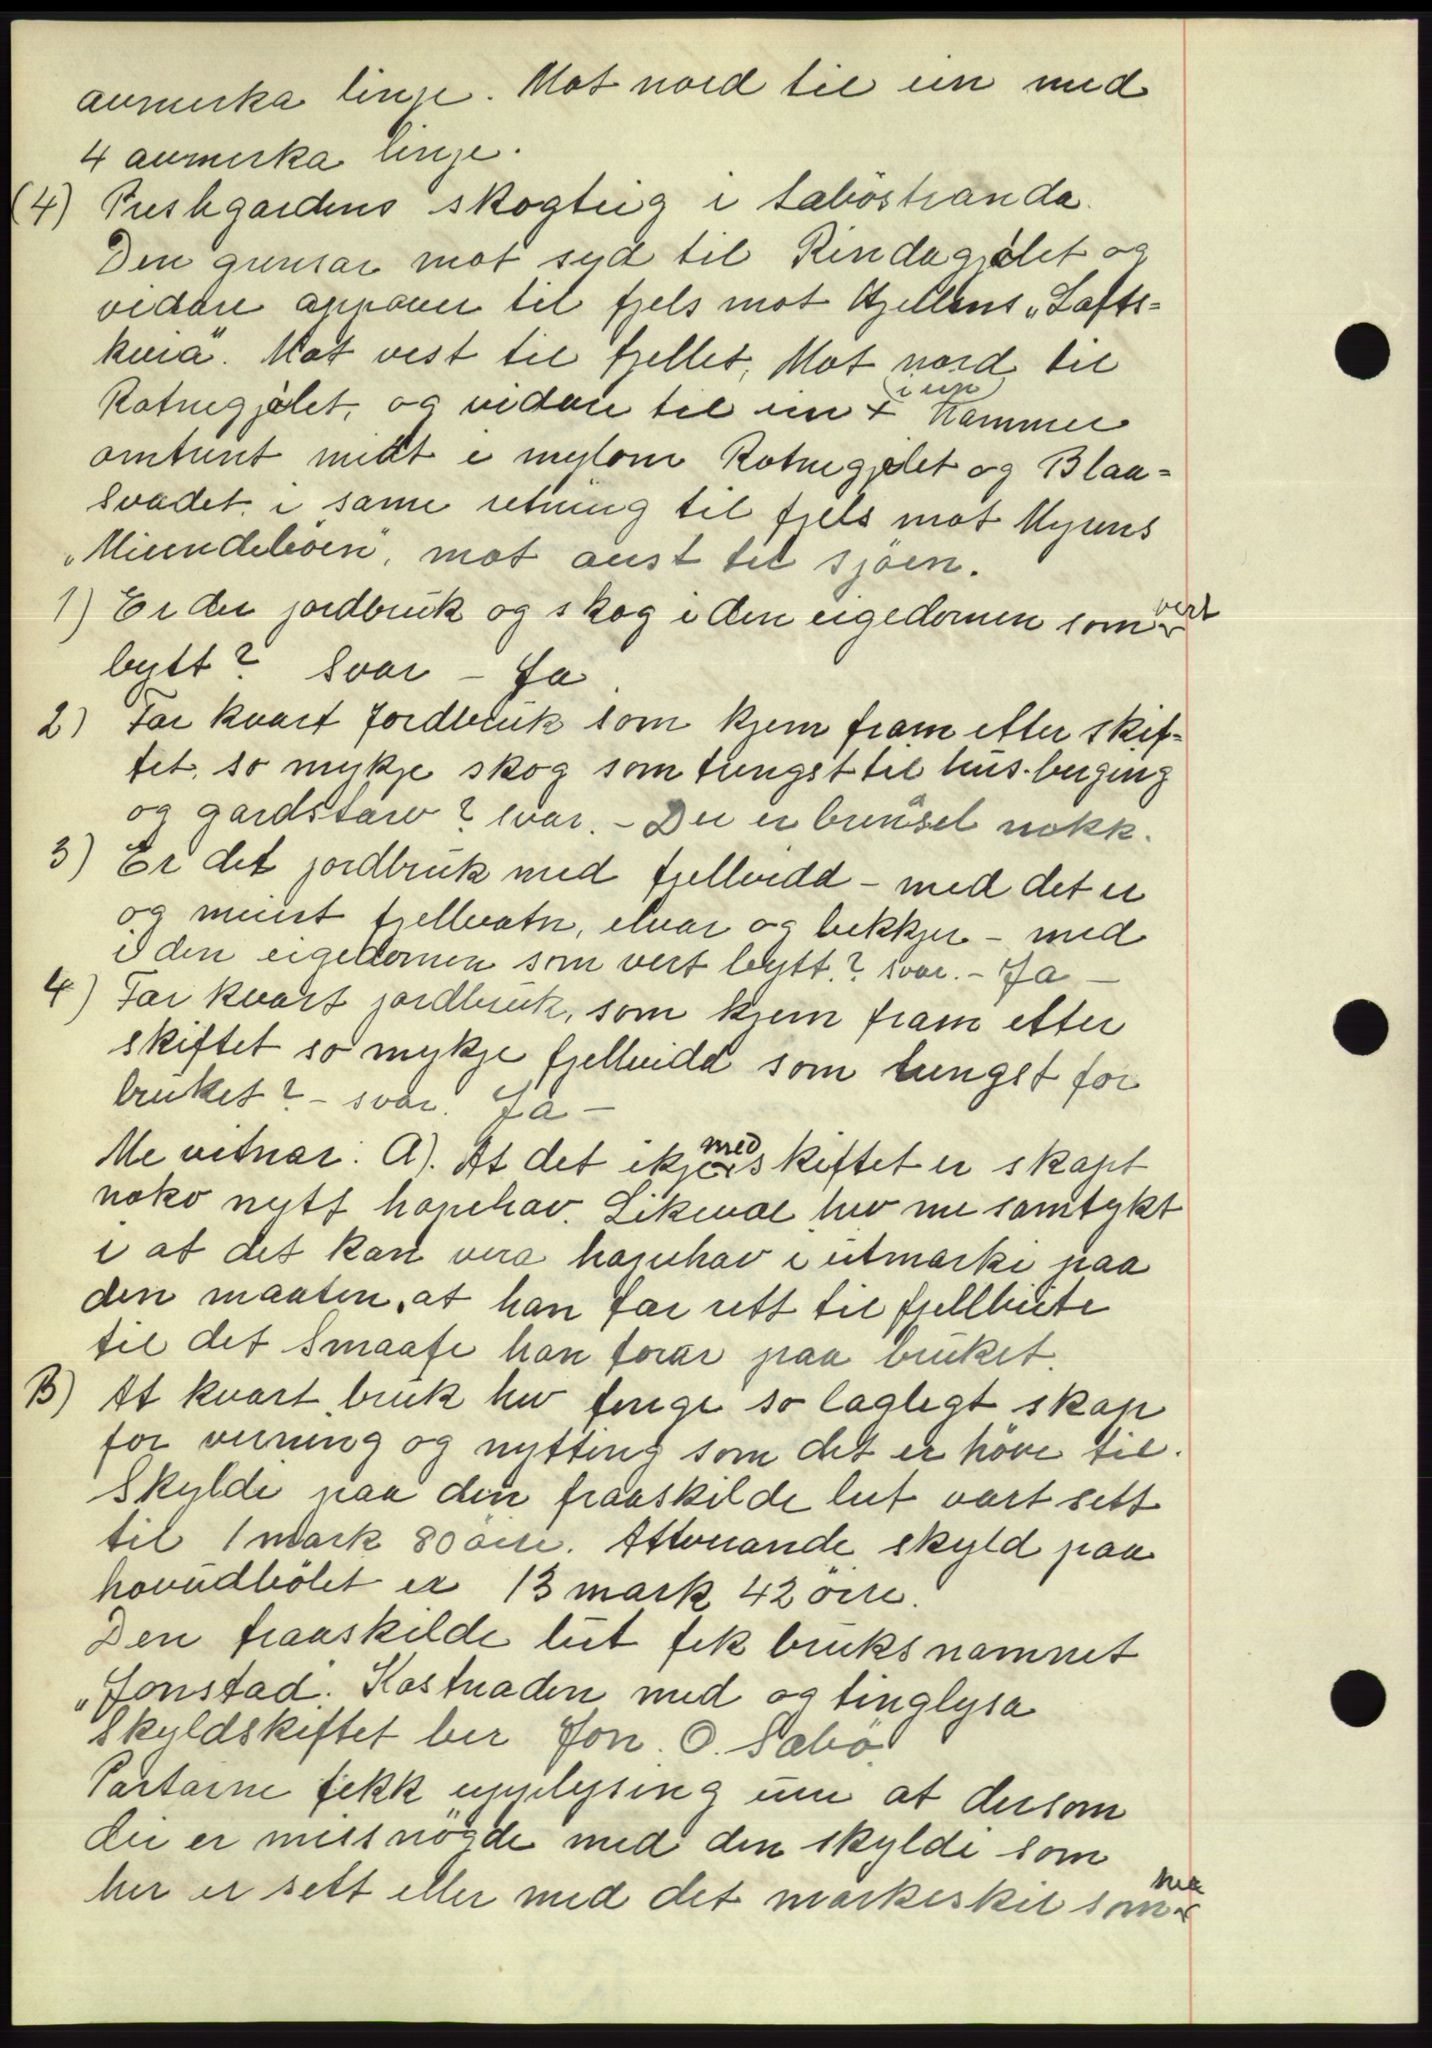 avmerka linje. Mot nord til ein med
4 avmerka linje.
(4) Prestegardens skogteig i Sæböstranda.
Den grensar mot syd til Rindagjölet og
vidare uppover til fjels mot Hjellens „Lafts=
kvia". Mot vest til fjellet, Mot nord til
Rotnegjölet, og vidare til ein + (i ein) Hammer
omtrent midt i mylom Rotnegjölet og Blaa=
svadet i same retning til fjels mot Myrens
„Miundeböen", mot aust til sjöen.
1) Er der jordbruk og skog i den eigedomen som vert
bytt? Svar – Ja.
2) Får kvart jordbruk som kjem fram etter skif=
tet, so mykje skog som tungst til hus-berging
og gardstarv? svar. – Der er brensel nokk.
3) Er det jordbruk med fjellvidd – med det er
og meint fjellvatn, elvar og bekkjer – med
i den eigedomen som vert bytt? svar. – Ja –
4) Får kvart jordbruk, som kjem fram etter
skiftet so mykje fjellvidd som tungst for
bruket? – svar. Ja –
Me vitnar: A). At det ikje med skiftet er skapt
noko nytt hopehav. Likeval hev me samtykt
i at det kan vera hopehav i utmarki paa
den maaten, at han får rett til fjellbeite
til det Smaafe han forar paa bruket.
B) At kvart bruk hev fenge so laglegt skap
for verning og nytting som det er höve til.
Skyldi paa den fraaskilde lut vart sett
til 1 mark 80 öire. Attverande skyld paa
hovudbölet er 13 mark 42 öire.
Den fraaskilde lut fek bruksnamnet
„Jonstad". Kostnaden med og tinglysa
skyldskiftet ber Jon. O. Sæbö.
Partarne fekk upplysing um at dersom
dei er missnögde med den skyldi som
her er sett eller med det markeskil som me